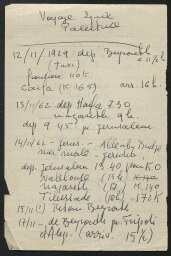 Voyage Syrie
Palestine
12/11/1929 dep Beyrouth
(taxi)
frontière 110K
Caifa (K 165) arr. 16h
13/11/62 dep Haifa 7.30
nazareth 9h
dep 9 45 p Jerusalem
14/11/62 - Jerus. - Allenby Bridge
mer morte - Jericho
dep. Jerusalem 13 40 K.O
nablouse (15h)
nazareth (17h) K.140
Tiberiade (18h) - 172K
15/11 (?) Retour Beyrouth
17/11 - de Beyrouth p Tripoli
d'Alep. (arriv. 15h)